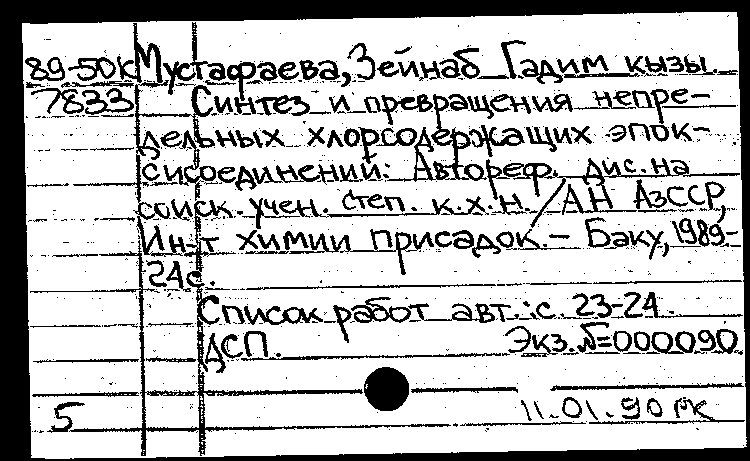 89-50к Мустафаева, Зейнаб Гадим кызы.
7833 Синтез и превращения непре-
дельных хлорсодержащих эпок-
сисоединений: Автореф. дис. на
соиск. учен. степ. к.х.н. / АН АзССР,
Ин-т химии присадок. - Баку, 1989-
24с.
Список работ авт.: с. 23-24.
ДСП. Экз. №=000090
5 11.01.90 РК